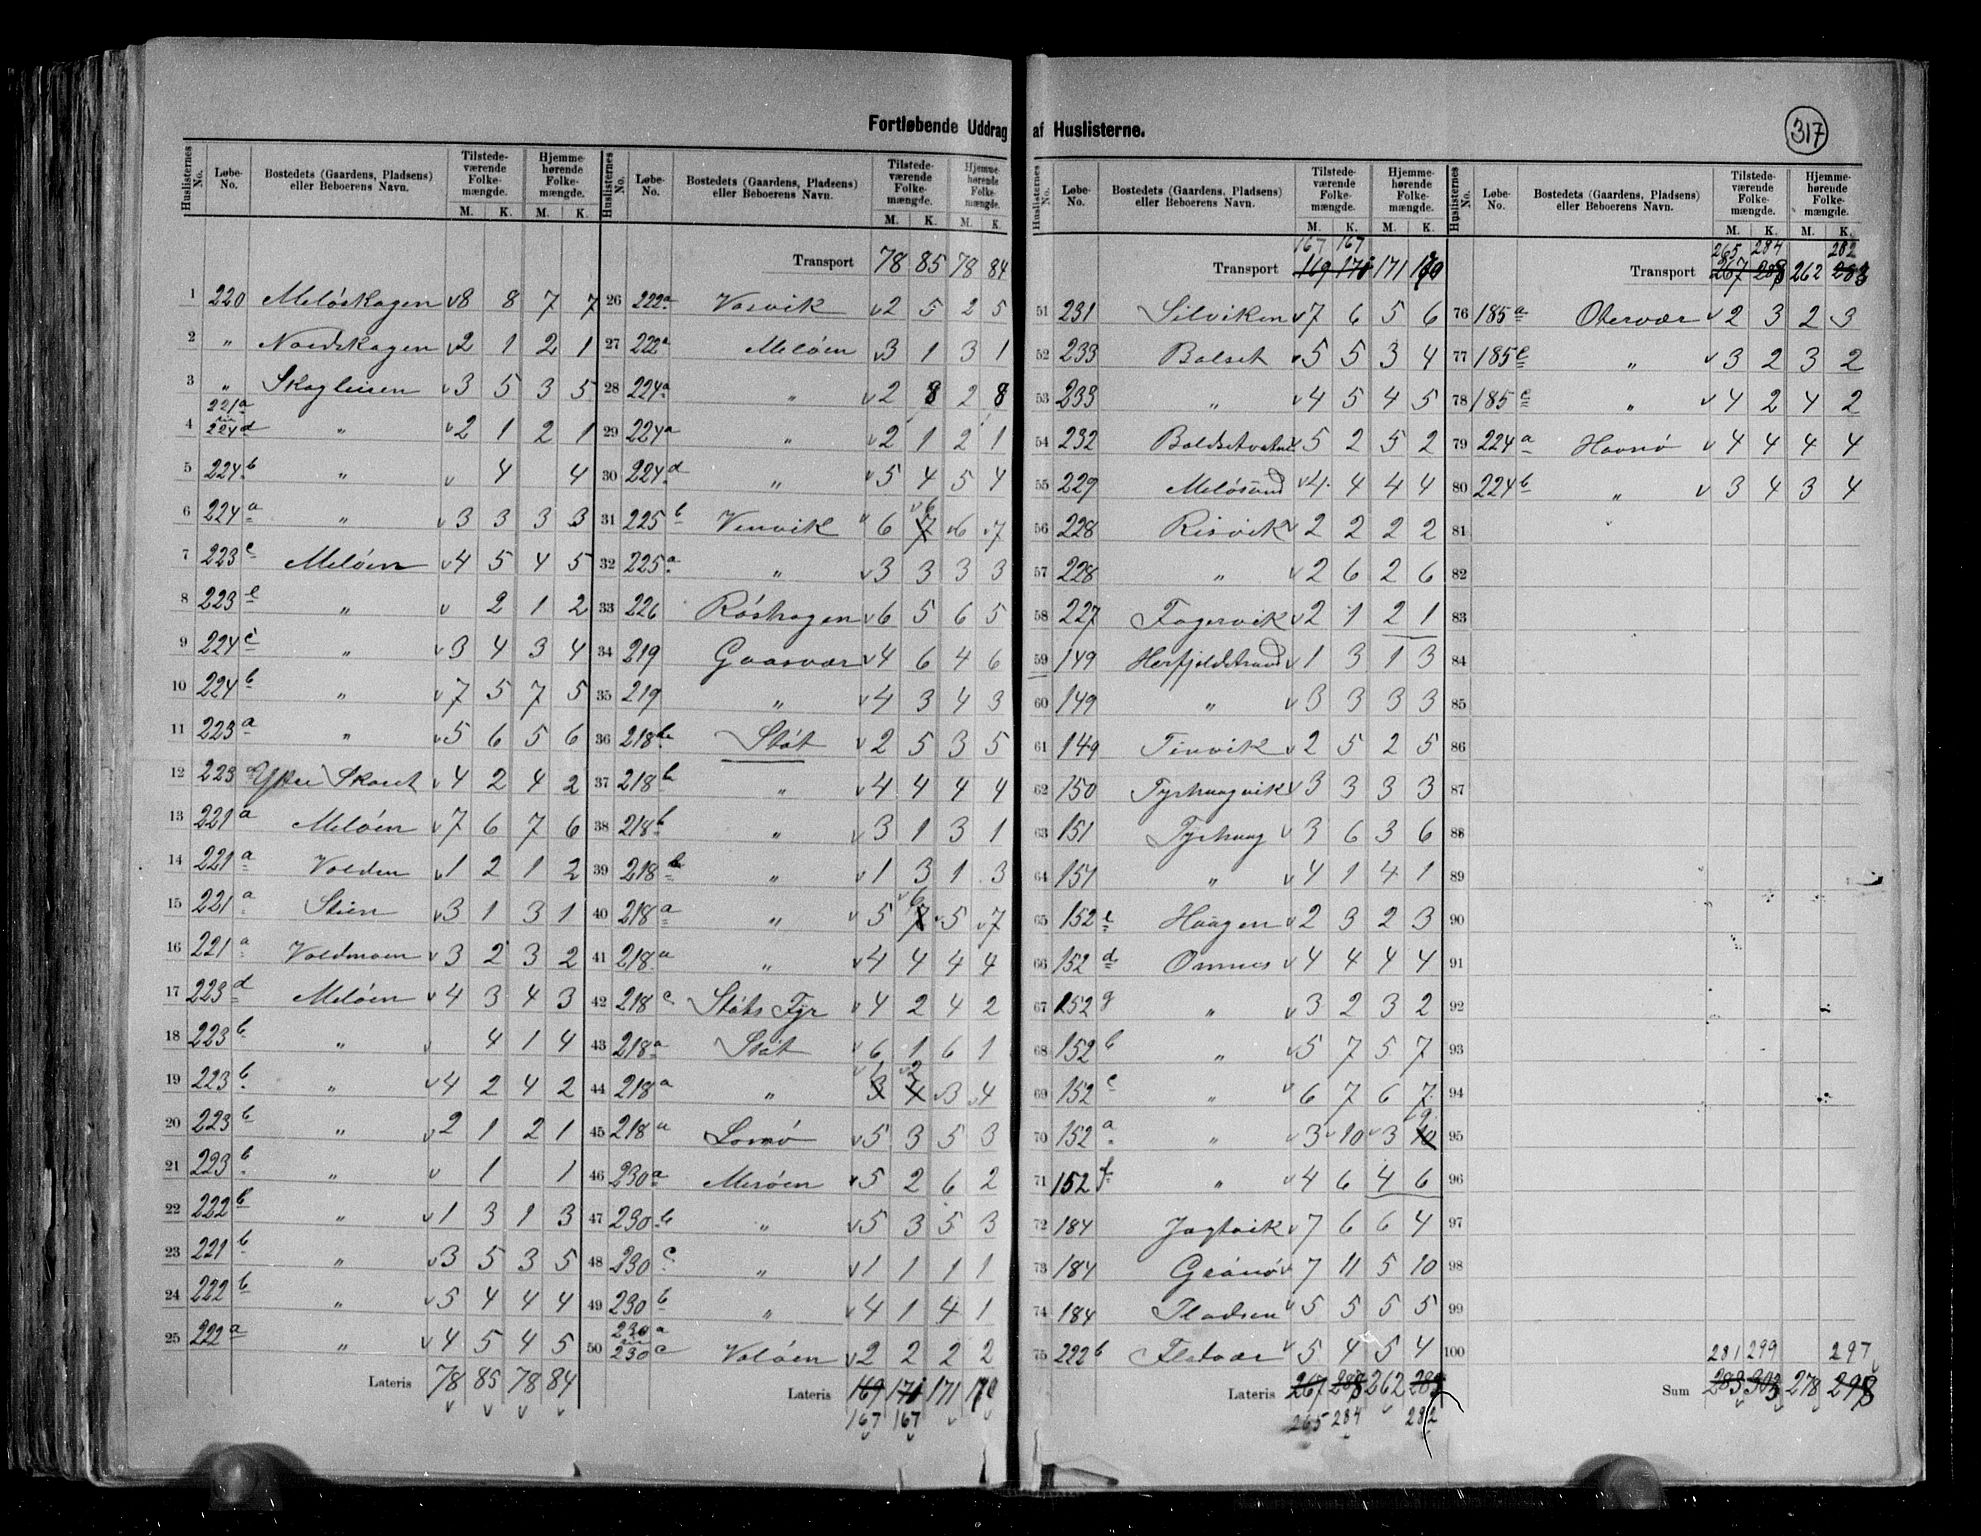 317
Fortløbende Uddrag af Huslisterne.
Huslisternes No. Løbe-No. Bostedets (Gaardens, Pladsens) eller Beboerens Navn. Tilstedeværende Folkemængde. M. K. Hjemmehørende Folkemængde. M. K.
1 220 Meløskagen v8 8 7 7
2 " Nordskagen v2 1 2 1
3 " Skogleisen v3 5 3 5
4 221a 224d " v2 1 2 1
5 224b " v 4 4
6 224a " v3 3 3 3
7 223c Meløen v4 5 4 5
8 223e " v 2 1 2
9 224c " v3 4 3 4
10 224b " v7 5 7 5
11 223a " v5 6 5 6
12 223a Yttre Skaret v4 2 4 2
13 221a Meløen v7 6 7 6
14 221a Volden v1 2 1 2
15 221a Stien v3 1 3 1
16 221a Voldmoen v3 2 3 2
17 223d Meløen v4 3 4 3
18 223b " v 4 1 4
19 223b " v4 2 4 2
20 223b " v2 1 2 1
21 223b " v 1 1
22 222b " v1 3 1 3
23 221b " v3 5 3 5
24 222b " v5 4 4 4
25 222a " v4 5 4 5
Lateris 78 85 78 84
Huslisternes No. Løbe-No. Bostedets (Gaardens, Pladsens) eller Beboerens Navn. Tilstedeværende Folkemængde. M. K. Hjemmehørende Folkemængde. M. K.
Transport 78 85 78 84
26 222a Vasvik v2 5 2 5
27 222a Meløen v3 1 3 1
28 224a " v2 8 2 8
29 224a " v2 1 2 1
30 224d " v5 4 5 4
31 225b Venvik v6 7 v6 v6 v7
32 225a " v3 3 3 3
33 226 Røshagen v6 5 6 5
34 219 Gaasvær v4 6 4 6
35 219 " v4 3 4 3
36 218b Støt v2 5 3 5
37 218b " v4 4 4 4
38 218b " v3 1 3 1
39 218b " v1 3 1 3
40 218a " v5 7 v6 v5 v7
41 218a " v4 4 4 4
42 218c Støts Fyr v4 2 4 2
43 218a Støt v6 1 6 1
44 218a " 3 4 v1 v2 v3 v4
45 218a v5 3 5 3
46 230a Mesøen v5 2 6 2
47 230b " v5 3 5 3
48 230c " v1 1 1 1
49 230b " v4 1 4 1
50 230a 230c Valøen v2 2 2 2
Lateris 169 171 171 170
167 167
Huslisternes No. Løbe-No. Bostedets (Gaardens, Pladsens) eller Beboerens Navn. Tilstedeværende Folkemængde. M. K. Hjemmehørende Folkemængde. M. K.
167 167
Transport 169 171 170
51 231 Silviken v7 6 5 6
52 233 Bolset v5 5 3 4
53 233 " v4 5 4 5
54 232 v5 2 5 2
55 229 Meløsund v4 4 4 4
56 228 Risvik v2 2 2 2
57 228 " v2 6 2 6
58 227 Fagervik v2 1 2 1
59 149 v1 3 1 3
60 149 " v3 3 3 3
61 149 Finvik v2 5 2 5
62 150 Tyrhaugvik v3 3 3 3
63 151 Tyrhaug v3 6 3 6
64 151 " v4 1 4 1
65 152e Haagen v2 3 2 3
66 152d Ornnes v4 4 4 4
67 152g " v3 2 3 2
68 152b " v5 7 5 7
69 152c " v6 7 6 7
70 152a " v3 v10 v3 10 v9
71 152f " v4 6 4 6
72 184 Jagtvik v7 6 6 4
73 184 Grønø v7 11 5 10
74 184 Fladsen v5 5 5 5
75 222b Flatvær v5 4 5 4
Lateris 267 288 262 283
265 284 282
Huslisternes No. Løbe-No. Bostedets (Gaardens, Pladsens) eller Beboerens Navn. Tilstedeværende Folkemængde. M. K. Hjemmehørende Folkemængde. M. K.
265 284 282
Transport 267 288 262 283
76 185a Otervær v2 3 2 3
77 185b " v3 2 3 2
78 185c " v4 2 4 2
79 224a Havnø v4 4 4 4
80 224b " v3 4 3 4
81
82
83
84
85
86
87
88
89
90
91
92
93
94
95
96
97
98
99
100
281 299 297
Sum 283 303 278 298